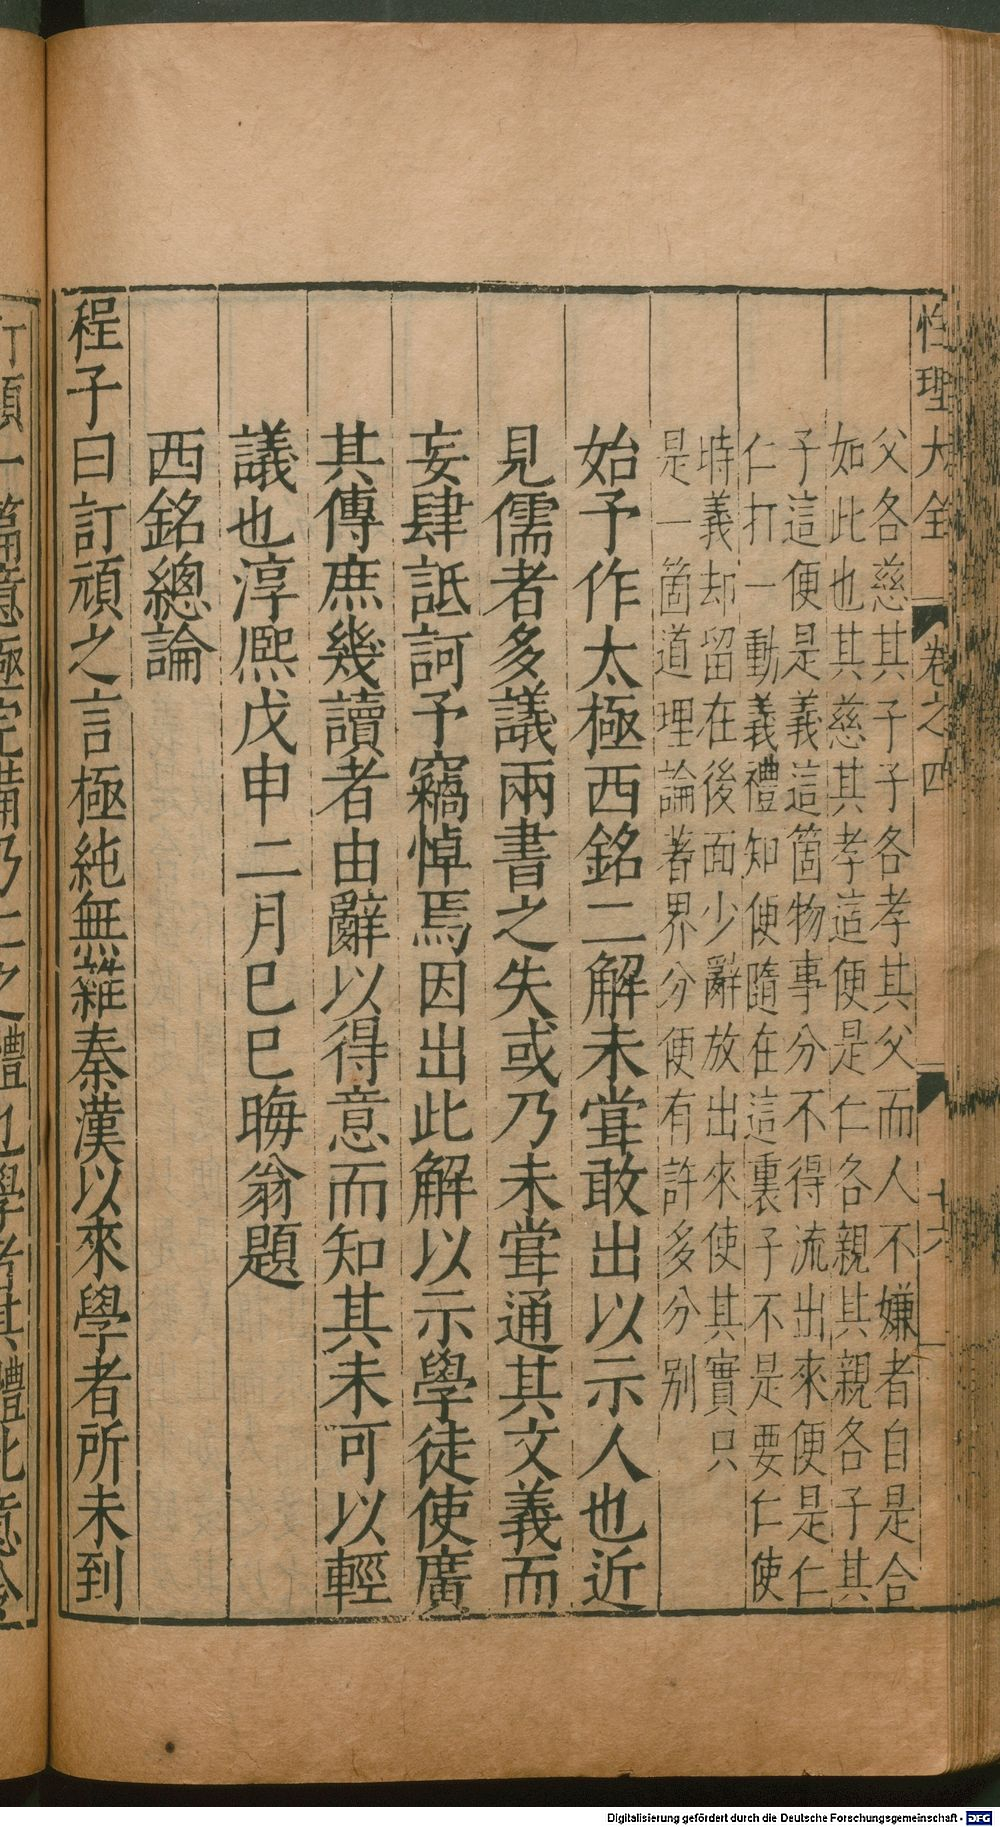 性理大全 卷之四 十六
父各慈其子子各孝其父而人不嫌者自是合
如此也其慈其孝這便是仁各親其親各子其
子這便是義這箇物事分不得流出來便是仁
仁打一動義禮知便隨在這裏子不是要仁使
時義却留在後面少辭放出來使其實只
是一箇道理論著界分便有許多分别
始予作太極西銘二解未甞敢出以示人也近
見儒者多議兩書之失或乃未甞通其文義而
妄肆詆訶予竊悼焉因出此解以示學徒使廣
其傳庶幾讀者由辭以得意而知其未可以輕
議也淳熈戊申二月巳巳晦翁題
西銘總論
程子曰訂頑之言極純無雜秦漢以來學者所未到
訂頑一篇意極完備乃仁之體也學者其體此意令
Digitalisierung gefördert durch die Deutsche Forschungsgemeinschaft - DFG